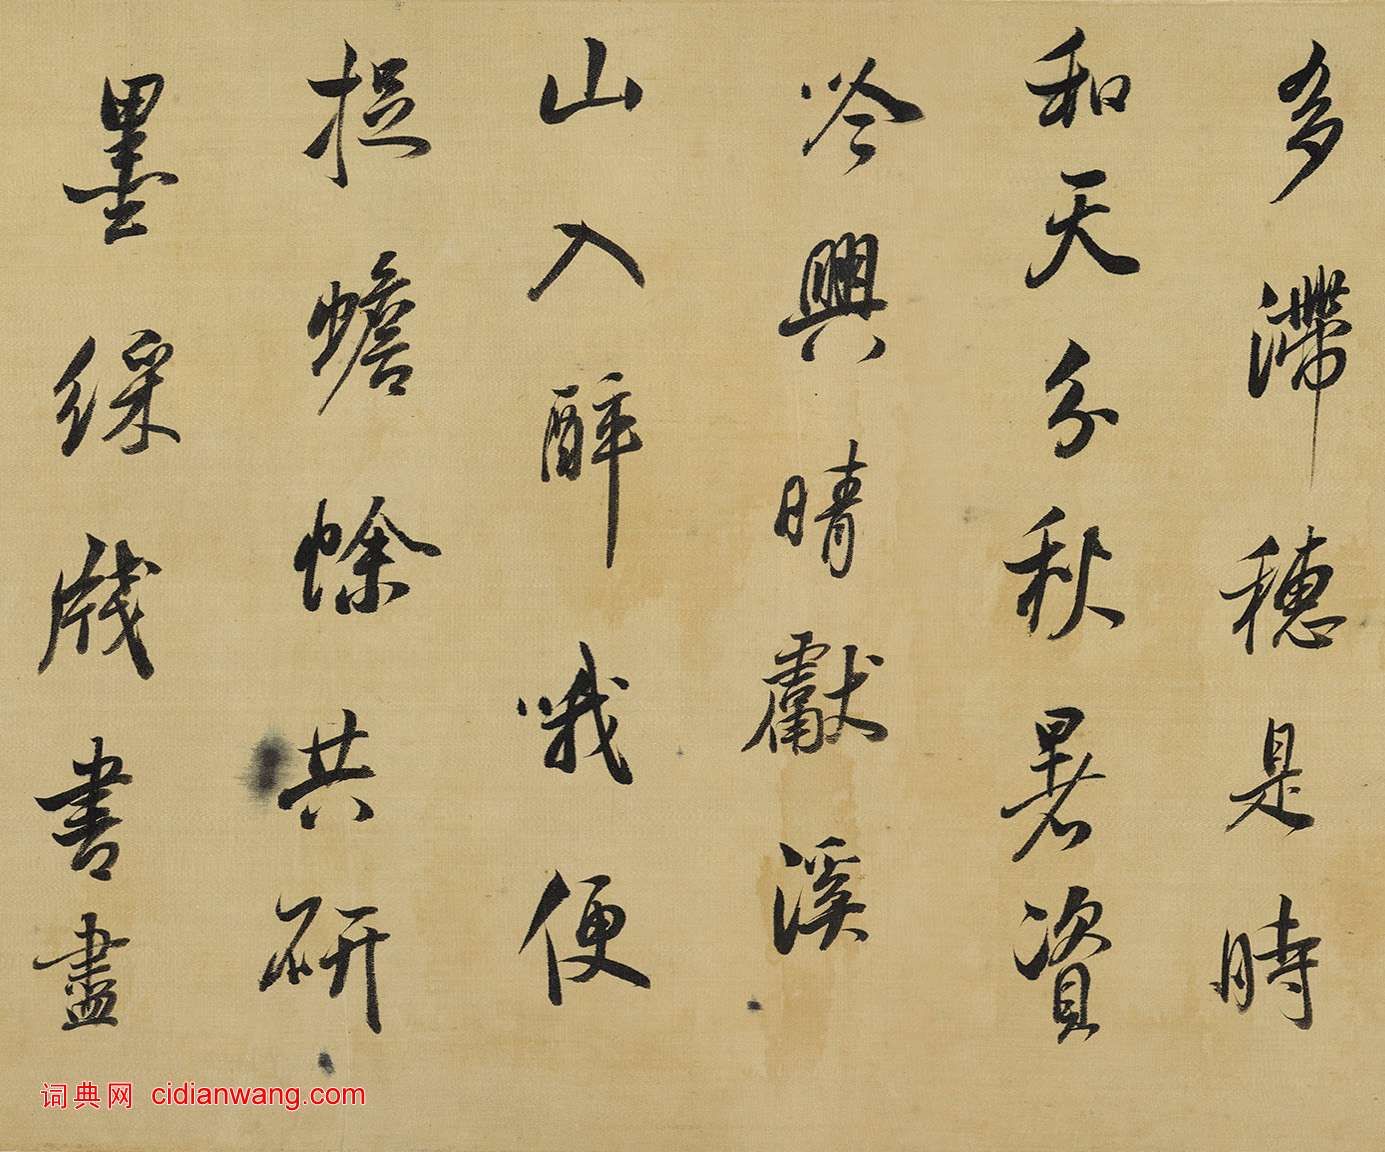 多滯穗是時
和天分秋暑資
吟興晴獻溪
山入酔哦便
捉蟾蜍共研
墨綵牋書盡
词典网 cidianwang.com